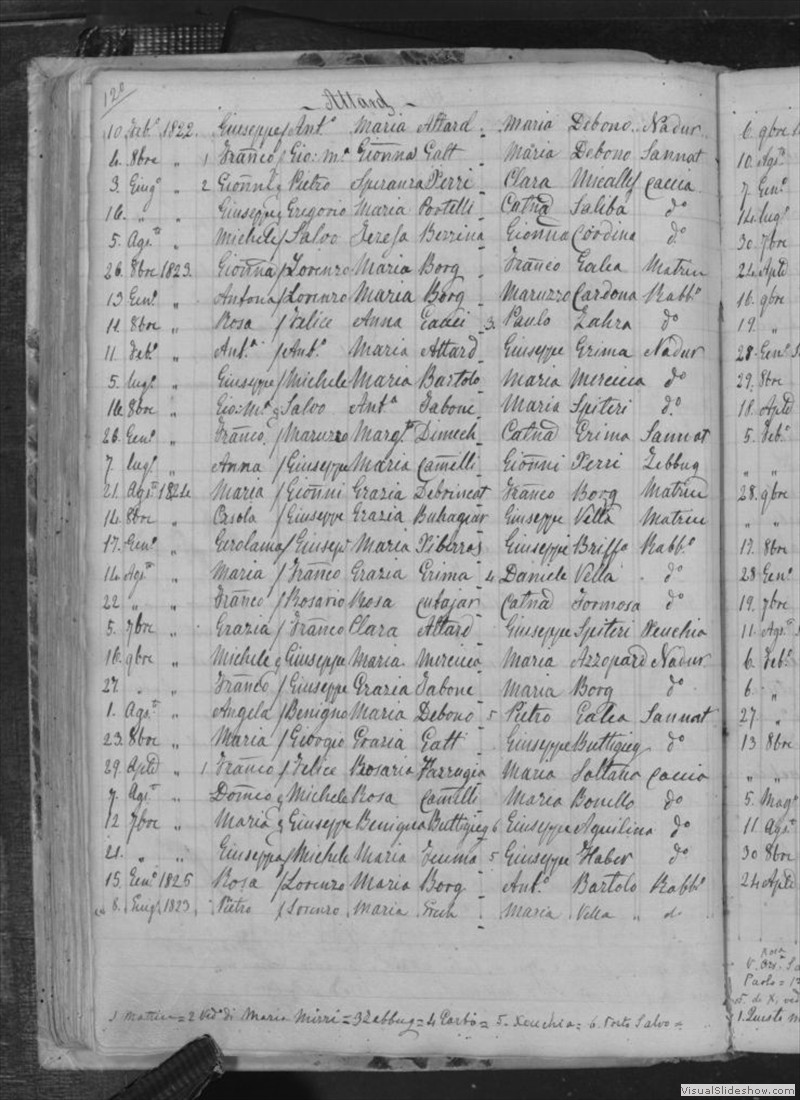 120
Attard
10 Feb.º 1822. Giuseppe f Ant.º Maria Attard Maria Debono Nadur
4. 8bre „ 1 Franco f Gio: Mª Gionna Gatt Maria Debono Sannat
3. Giugº „ 2 Gionni q Pietro Speranza Xerri Clara Micallef Caccia
16. „ „ Giuseppe q Gregorio Maria Portelli Catnd Saliba dº
5. Ags.tº „ Michele f Salvo Teresa Berrina Gionna Cordina dº
26. 8bre 1823. Gionna f Lorenzo Maria Borg Franco Galea
13 Genº „ Antona f Lorenzo Maria Borg Maruzzo Cardona Rabbº
11. 8bre „ Rosa f Felice Anna 3. Paulo Zahra dº
11. Febº „ Ant.ª f Ant.º Maria Attard Giuseppe Grima Nadur
5. lugl. „ Giuseppe f Michele Maria Bartolo Maria Mercieca dº
16. 8bre „ Gio: Mª q Salvo Ant.ª Tabone Maria Spiteri dº
26. Genº „ Franco f Maruzzo Marg.ta Dimech Catnd Grima Sannat
7. lugl. „ Anna f Giuseppe Maria Camilli Gionni Xerri Zebbug
21. Ags.tº 1824. Maria f Gionni Grazia Franco Borg
14. 8bre „ Orsola f Giuseppe Grazia Buhagiar Giuseppe Vella
17. Genº „ Gerolama f Giusepe Maria Xiberras Giuseppe Briffa Rabbº
14. Ags.tº „ Maria f Franco Grazia Grima 4. Daniele Vella dº
22 „ „ Franco f Rosario Rosa Cutajar Catnd Formosa dº
5. 7bre „ Grazia f Franco Clara Attard Giuseppe Spiteri Xeuchia
16. 9bre „ Michele q Giuseppe Maria Mercieca Maria Azzopard Nadur
27. „ „ Franco f Giuseppe Grazia Tabone Maria Borg dº
1. Ags.tº „ Angela f Benigno Maria Debono 5 Pietro Galea Sannat
23. 8bre „ Maria f Giorgio Grazia Gatt Giuseppe Buttigieg dº
29. „ 1 Franco f Felice Rosaria Farrugia Maria Soltana Caccia
7. Ags.tº „ Domco q Michele Rosa Camilli Maria Bonello dº
12 7bre „ Maria q Giuseppe Benigna Buttigieg 6 Giuseppe Aquilina dº
21. „ „ Giuseppa f Michele Maria 5 Giuseppe Haber dº
15. Genº 1825 Rosa f Lorenzo Maria Borg Ant.º Bartolo Rabbº
8. Giugº 1823. Pietro f Lorenzo Maria Grech Maria Vella „ dº
2 Vedº di Maria Mizzi = 3 Zabbug = 4 Garbo = 5. Xeuchia = 6. Porto Salvo =
6. 9bre
10. Ags.tº
7. Genº
14. lugl.
30. 7bre
24.
16. 9bre
19. „
28. Genº
29. 8bre
18.
5. Febº
„ „
28. 9bre
„ „
17. 8bre
28 Genº
19. 7bre
11. Ags.tº
6. Febº
6. „
27 „
13 8bre
„ „
5. Magº
11. Ags.tº
30 8bre
24
Paolo =
VisualSlideshow.com